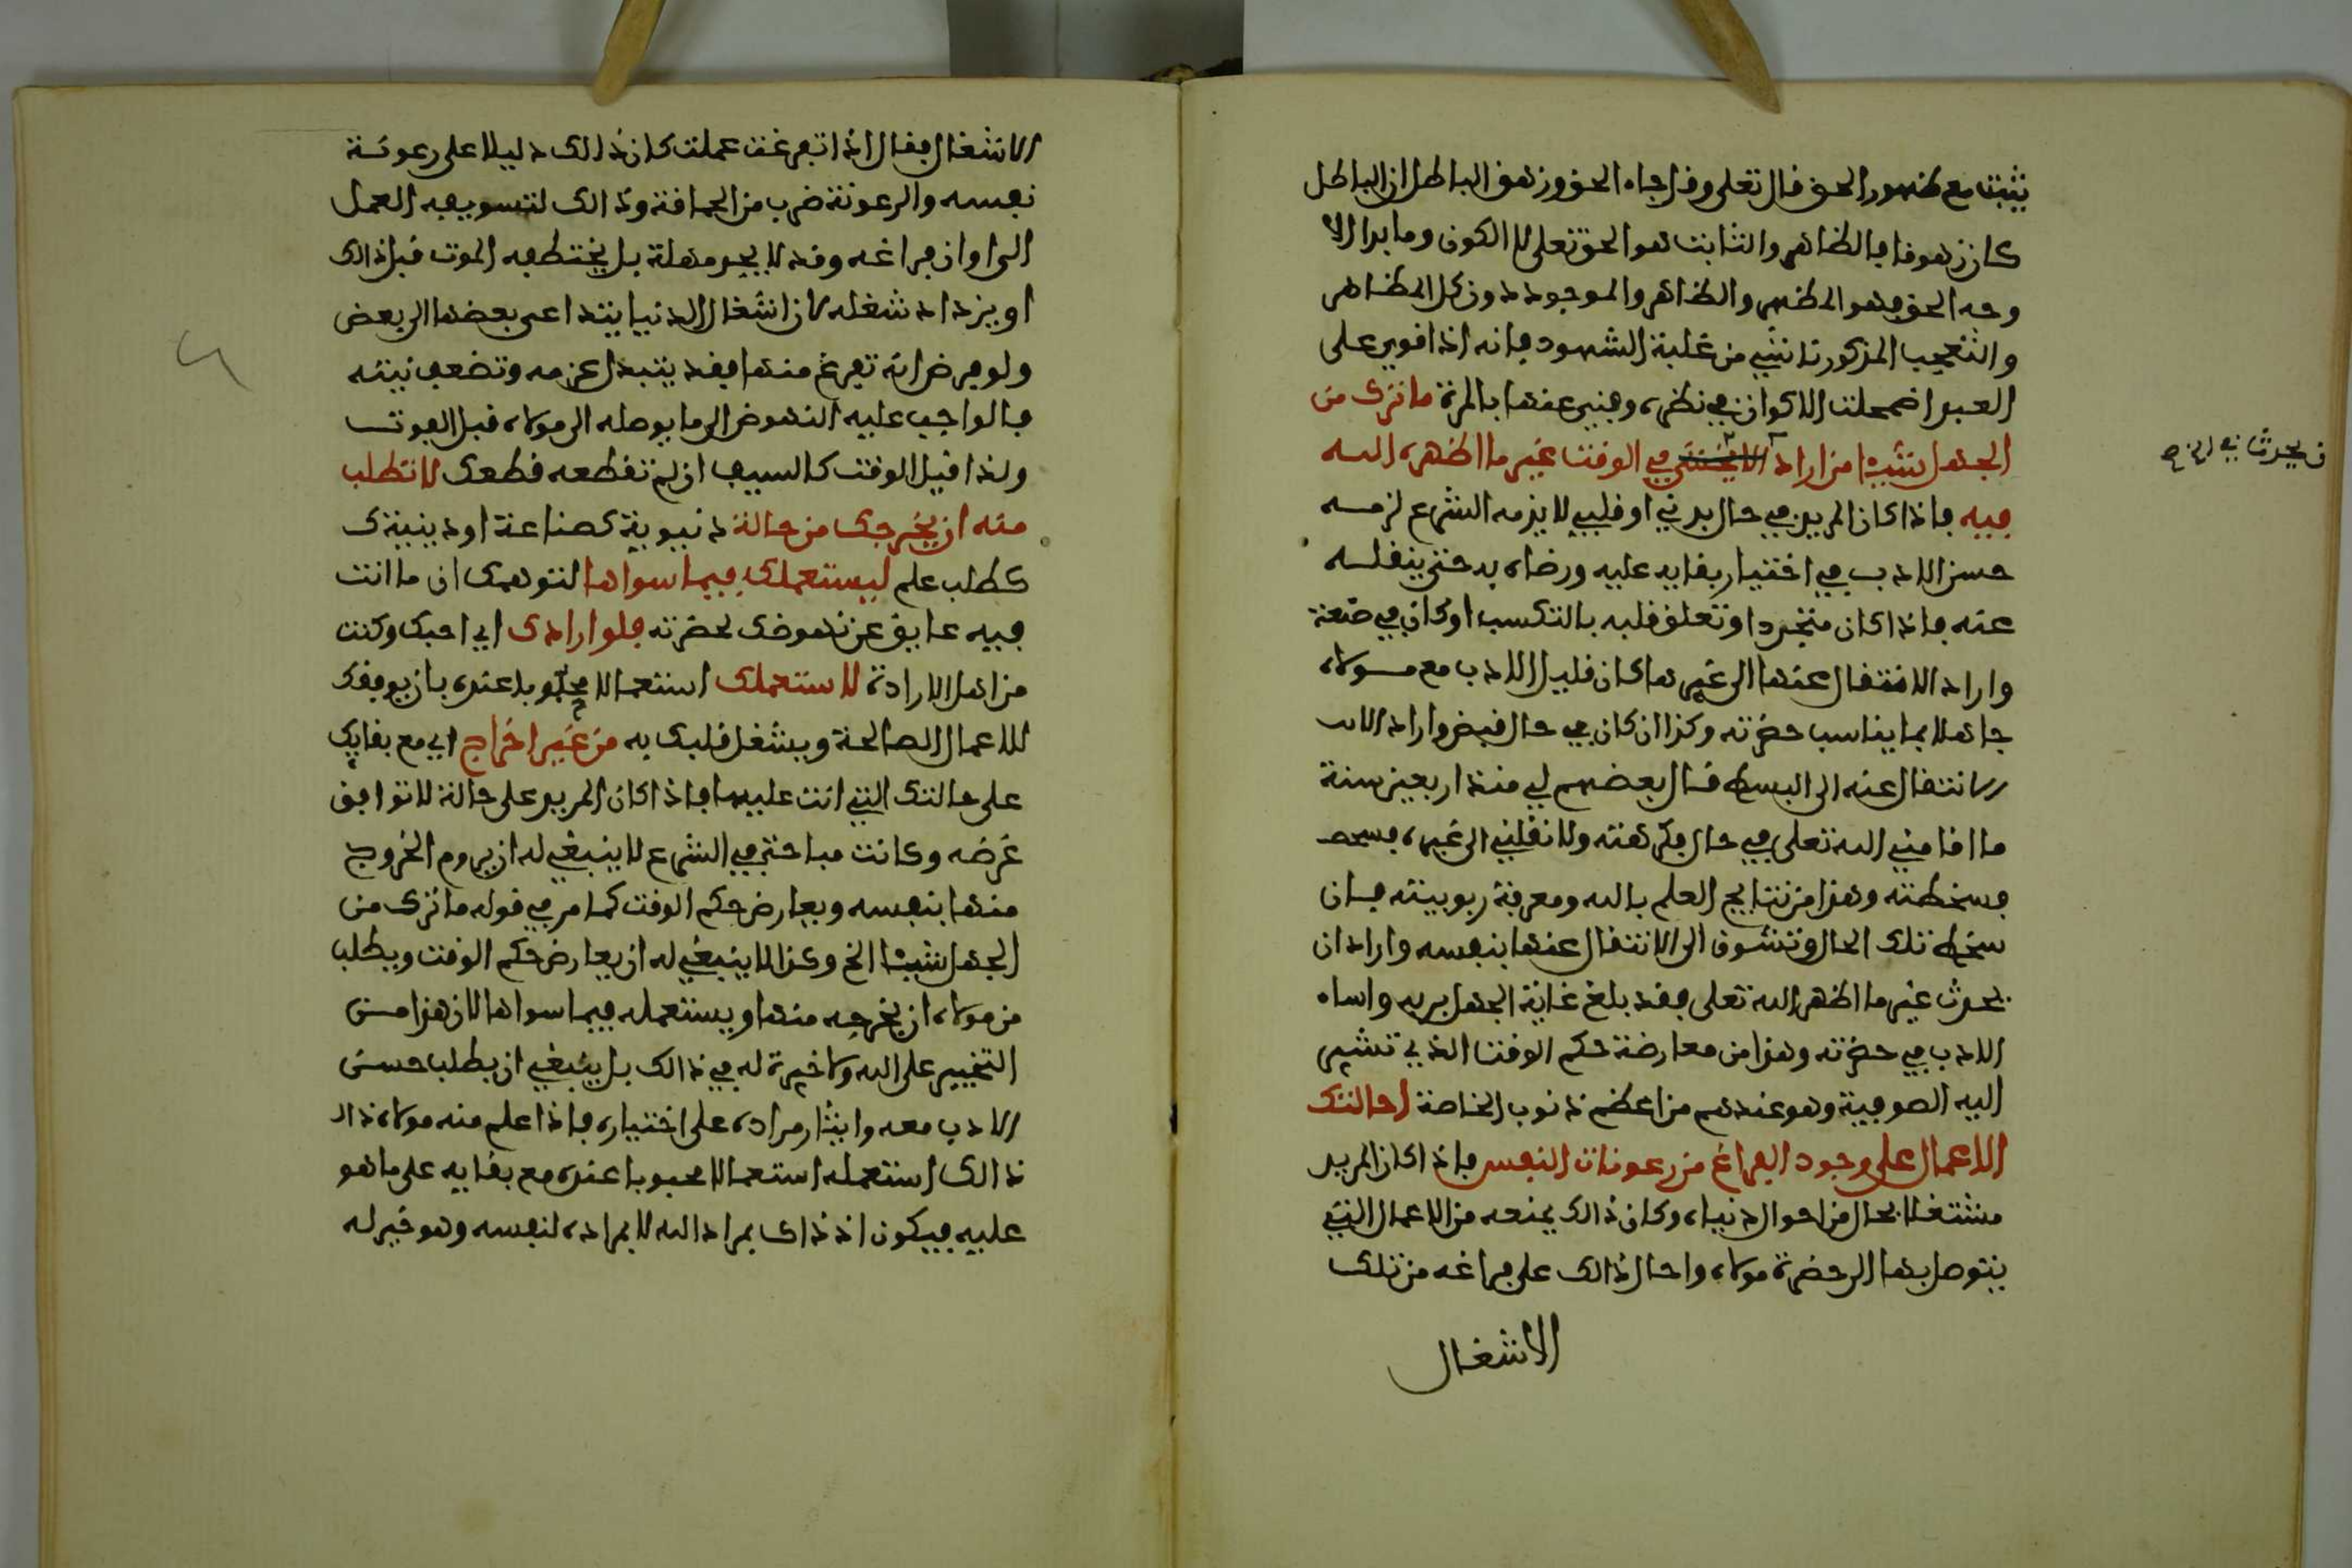 يثبت مع ظهور الحق قال تعلى وقل جاء الحق وزهق الباطل ان الباطل
كان زهوقا فالظاهر والثابت هو الحق تعلى لا الكون وما بدا الا
وجه الحق فهو المظهر والظاهر والموجود دون كل المظاهر
والتعجب المذكور ناشئ من غلبة الشهود فانه اذا قوي على
العبد اضمحلت الاكوان في نظره وفني عنها بالمرة ما ترك من
الجهل شيئا من اراد ان في الوقت غير ما اظهره الله
فيه فاذا كان المريد في حال بدني او قلبي لا يذمه الشرع لزمه
حسن الادب في اختيار بقايه عليه ورضاه به حتى ينقله
عنه فاذا كان متجردا وتعلق قلبه بالتكسب او كان في صنعة
واراد الانتقال عنها الى غيرها كان قليل الادب مع مولاه
جاهلا بما يناسب حضرته وكذا ان كان في حال قبض واراد الا
نتقال عنه الى البسط قال بعضهم لي منذ اربعين سنة
ما اقامني الله تعلى في حال فكرهته ولا نقلني الى غيره فسخطته
فسخطته وهذا من نتايج العلم بالله ومعرفة ربوبيته فان
سخط تلك الحال وتشوف الى الانتقال عنها بنفسه واراد ان
يحدث غير ما اظهر الله تعلى فقد بلغ غاية الجهل بربه واساء
الادب في حضرته وهذا من معارضة حكم الوقت الذي تشير
اليه الصوفية وهو عندهم من اعظم ذنوب الخاصة احالتك
الاعمال على وجود الفراغ من رعونات النفس فاذا كان المريد
مشتغلا بحال من احوال دنياه وكان ذالك يمنعه من الاعمال التي
يتوصل بها الى حضرة مولاه واحال ذالك على فراغه من تلك
الاشغال
ان يحدث
الاشغال فقال اذا تفرغت عملت كان ذالك دليلا على رعونة
نفسه والرعونة ضرب من الحماقة وذالك لتسويفه العمل
الى اوان فراغه وقد لا يجد مهلة بل يختطفه الموت قبل ذالك
او يزداد شغله لان اشغال الدنيا يتداعى بعضها الى بعض
ولو فرض انه تفرغ منها فقد يتبدل عزمه وتضعف نيته
فالواجب عليه النهوض الى ما يوصله الى مولاه قبل الفوت
ولذا قيل الوقت كالسيف ان لم تقطعه قطعك لا تطلب
منه ان يخرجك من حالة دنيوية كصناعة او دينية
كطلب علم ليستعملك فيما سواها لتوهمك ان ما انت
فيه عايق عن نهوضك لحضرته فلو ارادك اي احبك وكنت
من اهل الارادة لاستعملك استعمالا محبوبا عنده بان يوفقك
للاعمال الصالحة ويشغل قلبك به من غير اخراج اي مع بقايك
على حالتك التي انت عليها فاذا كان المريد على حالة لا توافق
غرضه وكانت مباحة في الشرع لا ينبغي له ان يروم الخروج
منها بنفسه ويعارض حكم الوقت كما مر في قوله ما ترك من
الجهل شيئا الخ وكذا لا ينبغي له ان يعارض حكم الوقت ويطلب
من مولاه ان يخرجه منها ويستعمله فيما سواها لان هذا من
التخيير على الله ولا خيرة له في ذالك بل ينبغي ان يطلب حسن
الادب معه وايثار مراده على اختياره فاذا علم منه مولاه ذالك
ذالك استعمله استعمالا محبوبا عنده مع بقايه على ما هو
عليه فيكون اذ ذاك بمراد الله لا بمراده لنفسه وهو خير له